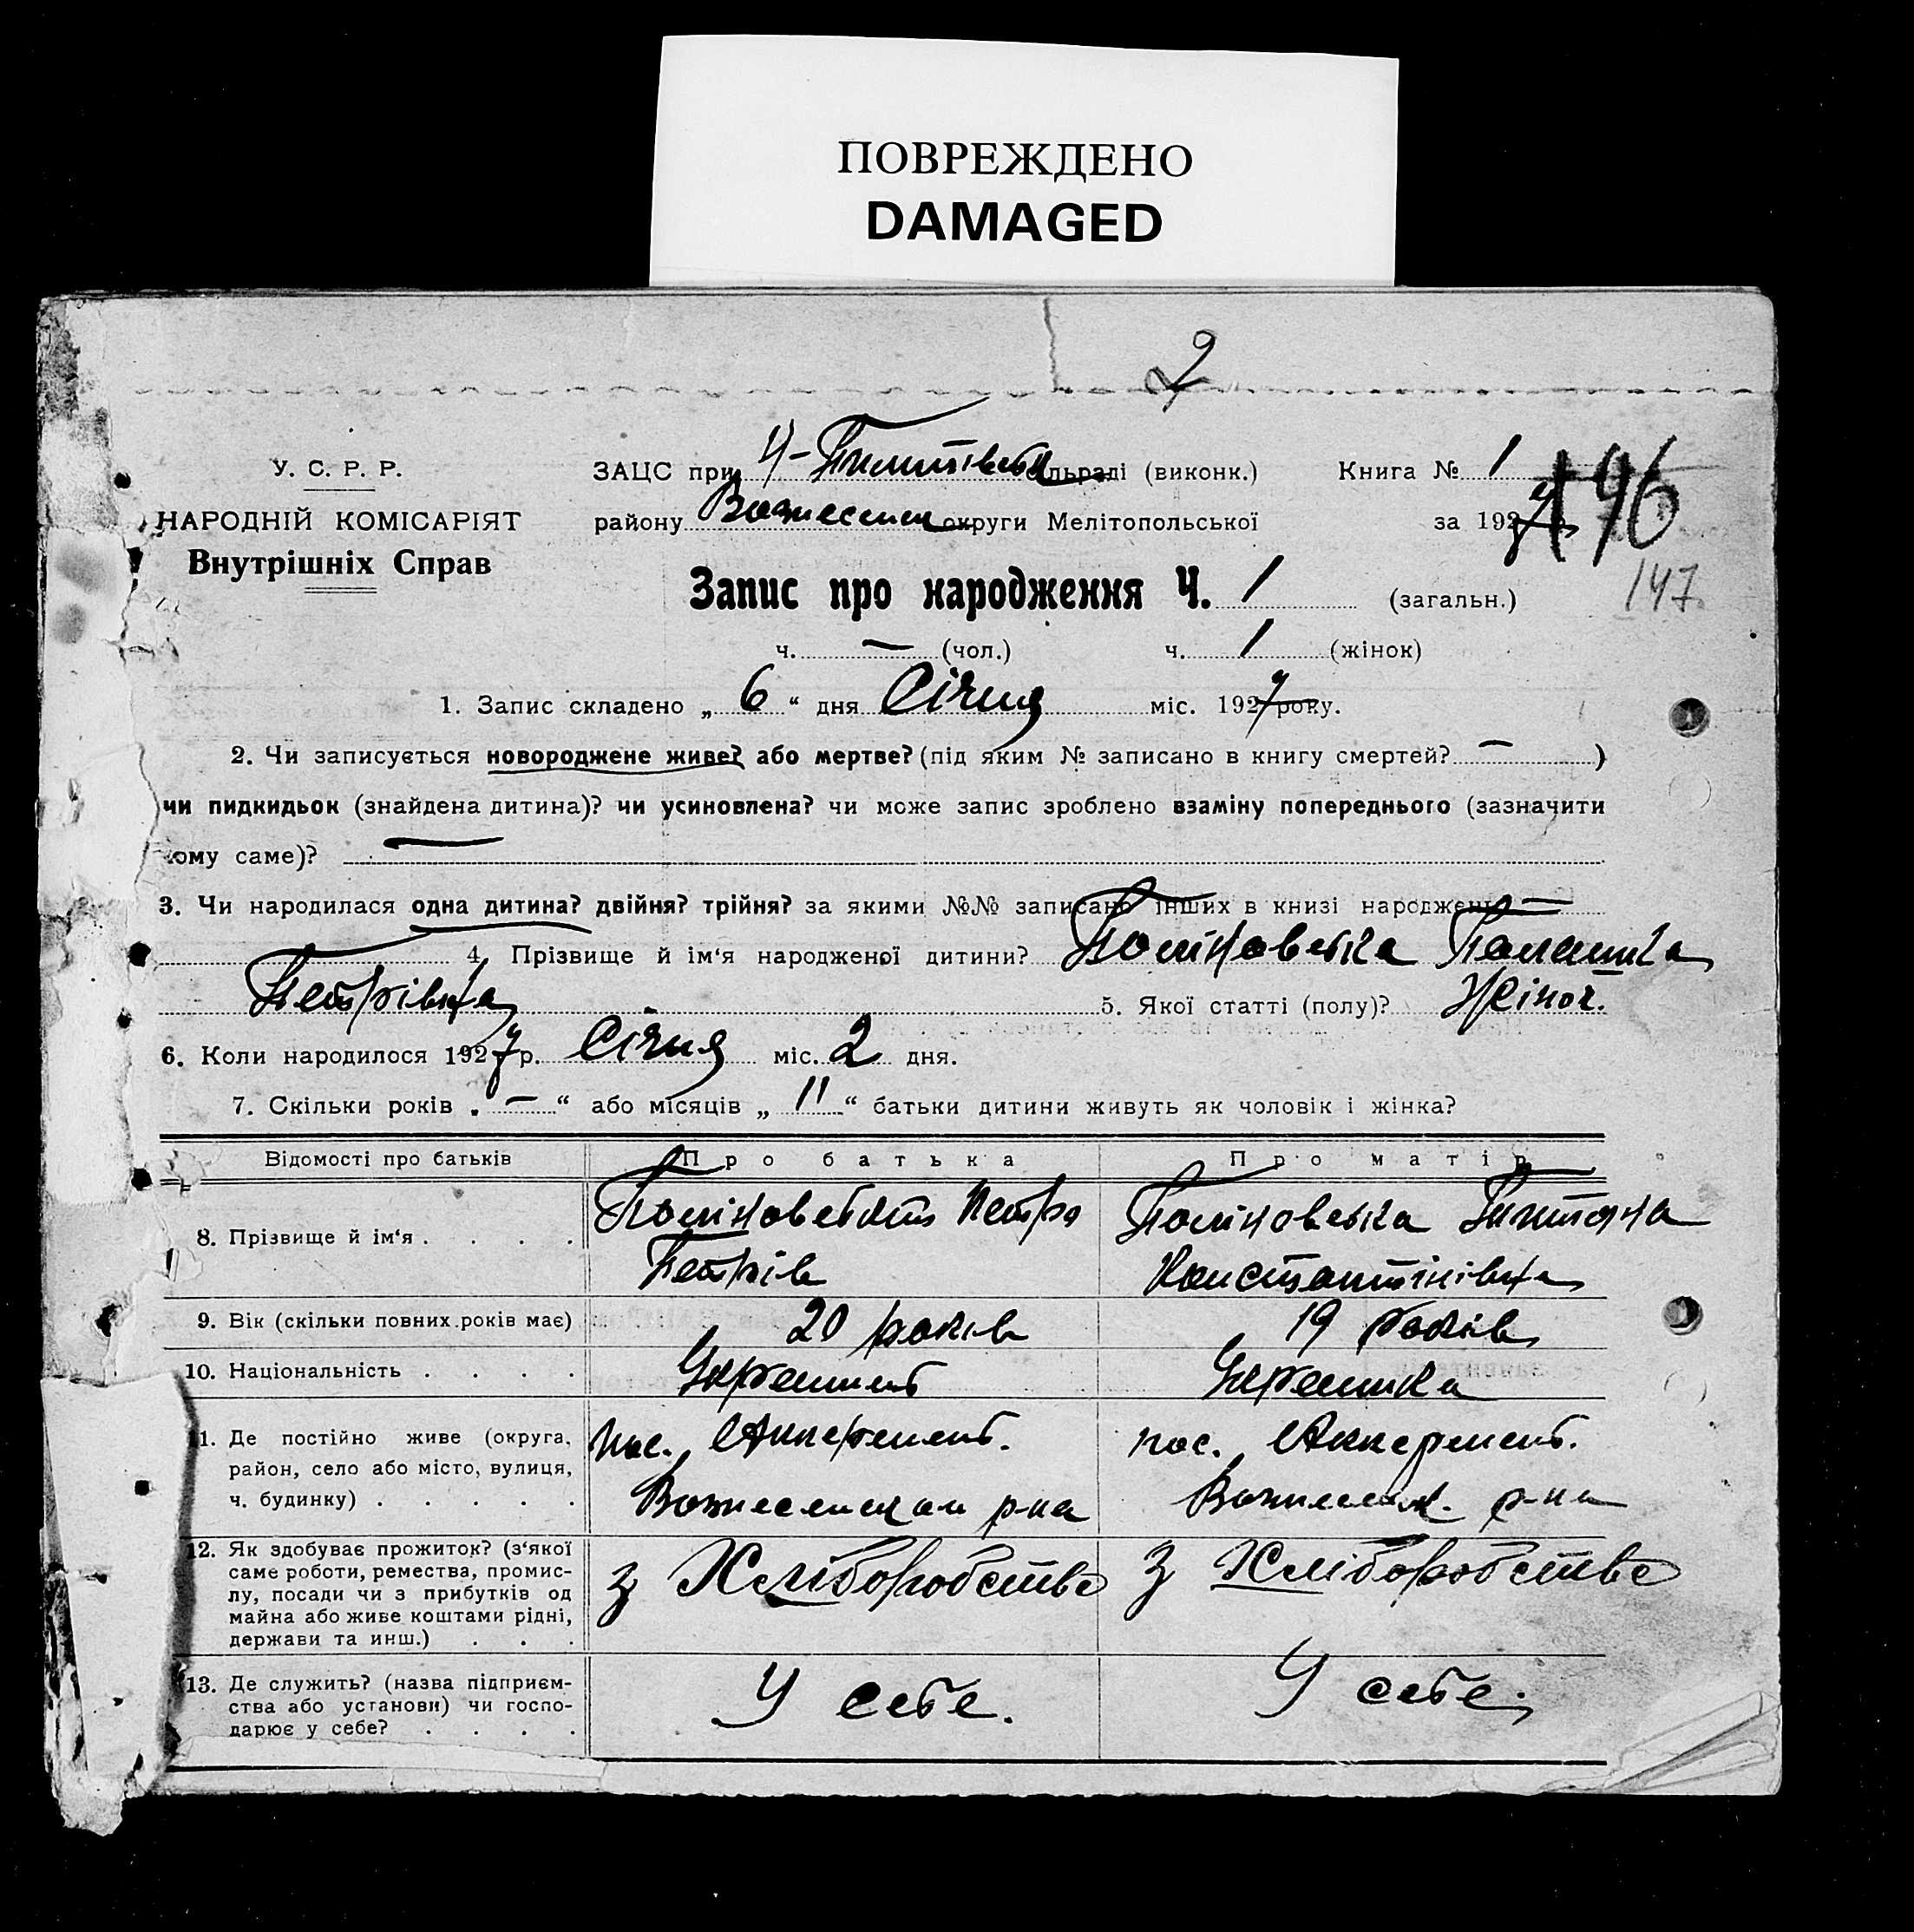 ПОВРЕЖДЕНО
DAMAGED
2
У. С. Р. Р.
НАРОДНІЙ КОМІСАРІЯТ
Внутрішніх Справ
ЗАЦС при сільраді (виконк.) Книга № 1
району Вознесенськ округи Мелітопольської за 1927
196
Запис про народження Ч. 1 (загальн.)
147
ч. — (чол.) ч. 1 (жінок)
1. Запис складено „ 6 “ дня Січня міс. 1927 року.
2. Чи записується новороджене живе? або мертве? (під яким № записано в книгу смертей? — )
чи пидкидьок (знайдена дитина)? чи усиновлена? чи може запис зроблено взаміну попереднього (зазначити
кому саме)? —
3. Чи народилася одна дитина? двійня? трійня? за якими №№ записано інших в книзі народжень —
4. Прізвище й ім‘я народженої дитини?
Петрівна 5. Якої статті (полу)? Жіноч.
6. Коли народилося 1927 р. Січня міс. 2 дня.
7. Скільки років „ — “ або місяців „ 11 “ батьки дитини живуть як чоловік і жінка?
Відомості про батьків Про батька Про матір
8. Прізвище й ім‘я . . . . Петро
Петрів Константінівна
9. Вік (скільки повних років має) 20 років 19 років
10. Національність . . . . Українець Українка
11. Де постійно живе (округа, пос. Аккермень. пос. Аккермень.
район, село або місто, вулиця,
ч. будинку) . . . . . р-на р-на
12. Як здобуває прожиток? (з‘якої
саме роботи, ремества, промис-
лу, посади чи з прибутків од з Хліборобства з Хліборобства
майна або живе коштами рідні,
держави та инш.) . . .
13. Де служить? (назва підприєм- У себе. У себе.
ства або установи) чи госпо-
дарює у себе? . . . .